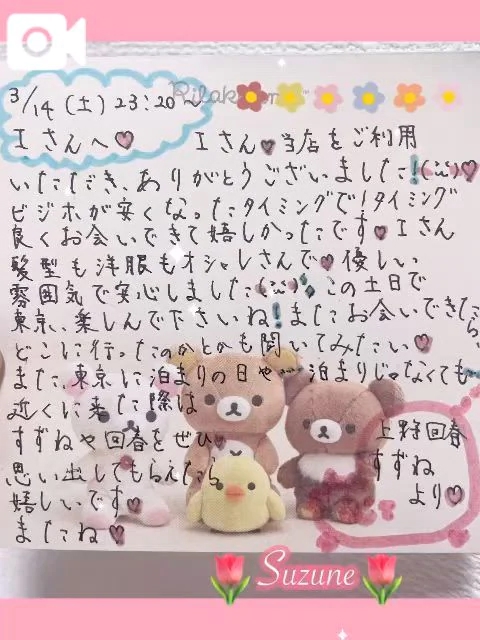 3/14(土)23:20〜
Rilakkuma
Iさんへ♡
Iさん♡当店をご利用
いただき、ありがとうございました!(¨̮)♡
ビジホが安くなったタイミングで!タイミング
良くお会いできて嬉しかったです♡Iさん
髪型も洋服もオシャレさんで♡優しい
雰囲気で安心しました(¨̮)この土日で
東京、楽しんで下さいね!またお会いできたら、
どこに行ったのかとかも聞いてみたい♡
また、東京に泊まりの日や 泊まりじゃなくても…
近くに来た際は
すずねや回春をぜひ
思い出してもらえたら
嬉しいです♡
またね♡
上野回春
すずね
より♡
Suzune